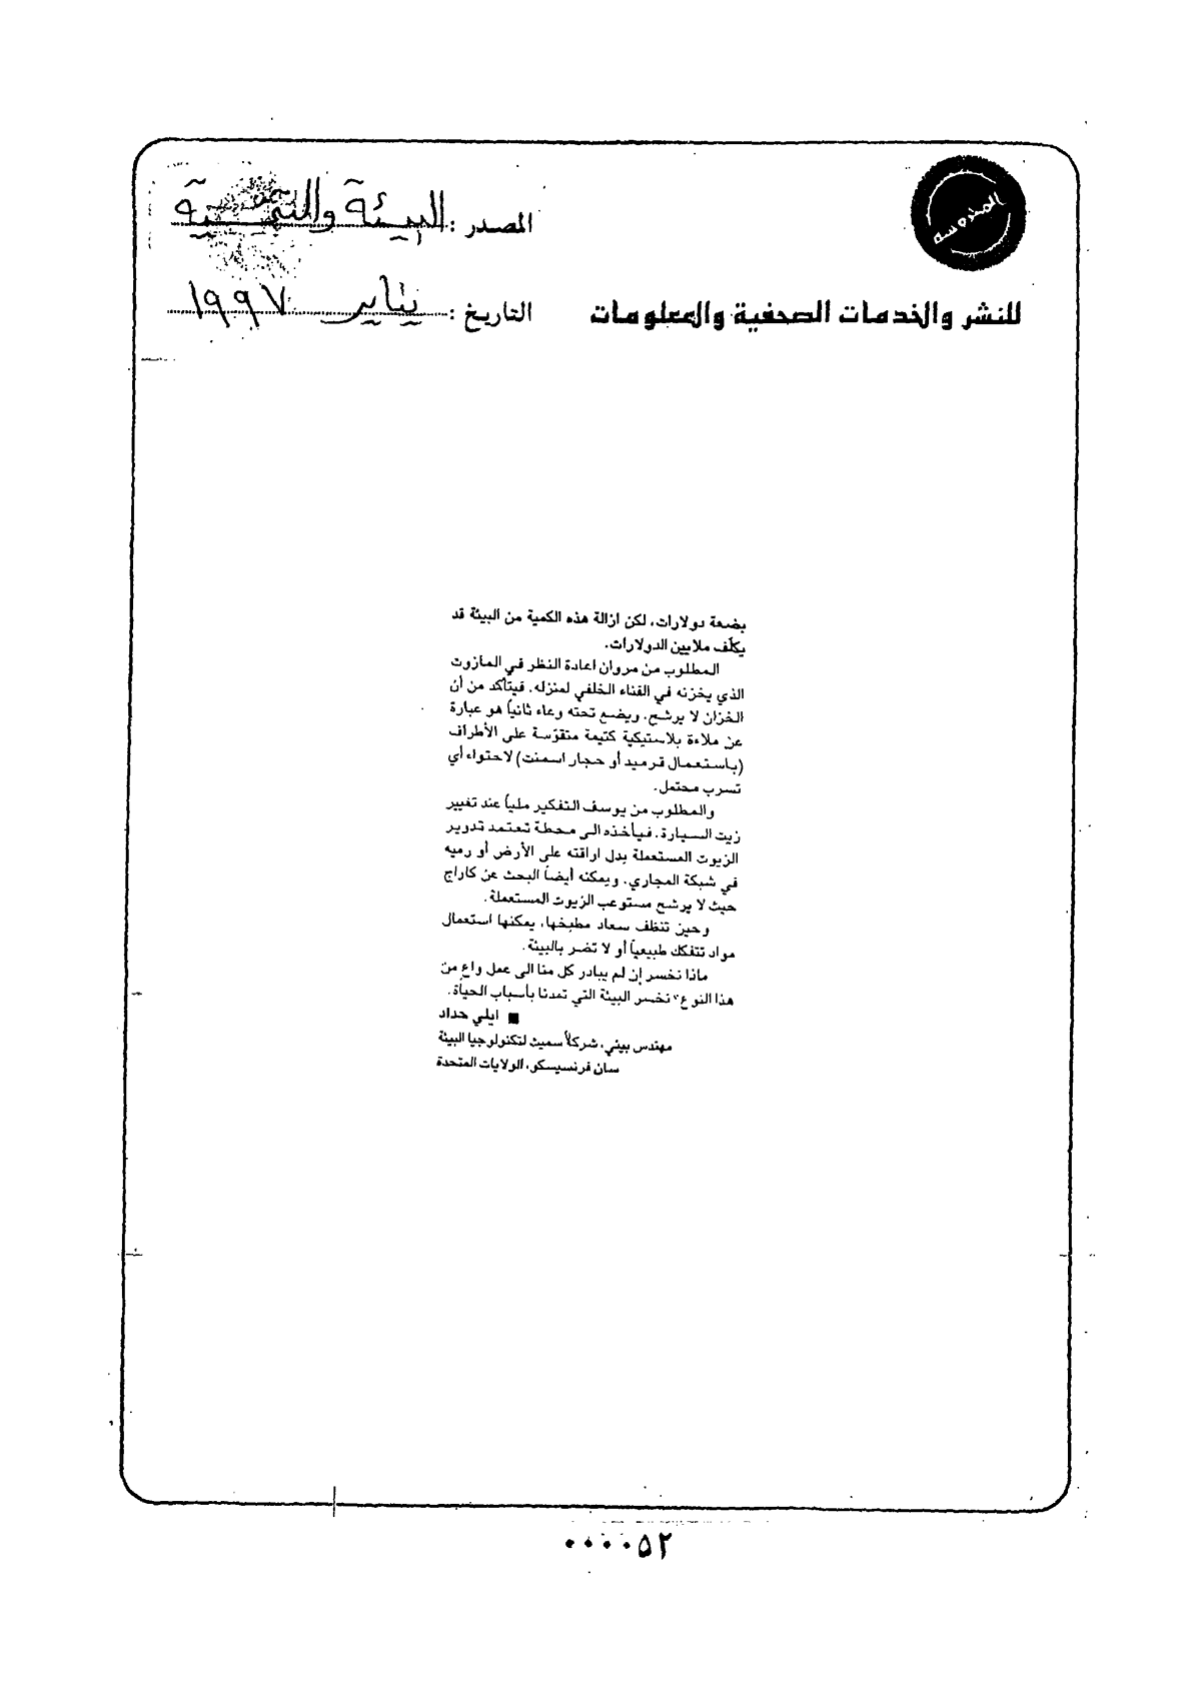 المحروسة
المصدر : البيئة والتنمية
للنشر والخدمات الصحفية والمعلومات
التاريخ : يناير ١٩٩٧
بضعة دولارات، لكن ازالة هذه الكمية من البيئة قد
يكلّف ملايين الدولارات.
المطلوب من مروان اعادة النظر في المازوت
الذي يخزنه في الفناء الخلفي لمنزله. فيتأكد من أن
الخزان لا يرشح، ويضع تحته وعاء ثانياً هو عبارة
عن ملاءة بلاستيكية كتيمة متقوّسة على الأطراف
(باستعمال قرميد أو حجار اسمنت) لاحتواء أي
تسرب محتمل.
والمطلوب من يوسف التفكير ملياً عند تغيير
زيت السيارة. فيأخذه الى محطة تعتمد تدوير
الزيوت المستعملة بدل اراقته على الأرض أو رميه
في شبكة المجاري. ويمكنه أيضاً البحث عن كاراج
حيث لا يرشح مستوعب الزيوت المستعملة.
وحين تنظف سعاد مطبخها، يمكنها استعمال
مواد تتفكك طبيعياً أو لا تضر بالبيئة.
ماذا نخسر إن لم يبادر كل منا الى عمل واعٍ من
هذا النوع؟ نخسر البيئة التي تمدنا بأسباب الحياة.
■ ايلي حداد
مهندس بيئي، شركة سميث لتكنولوجيا البيئة
سان فرنسيسكو، الولايات المتحدة
٠٠٠٠٥٢